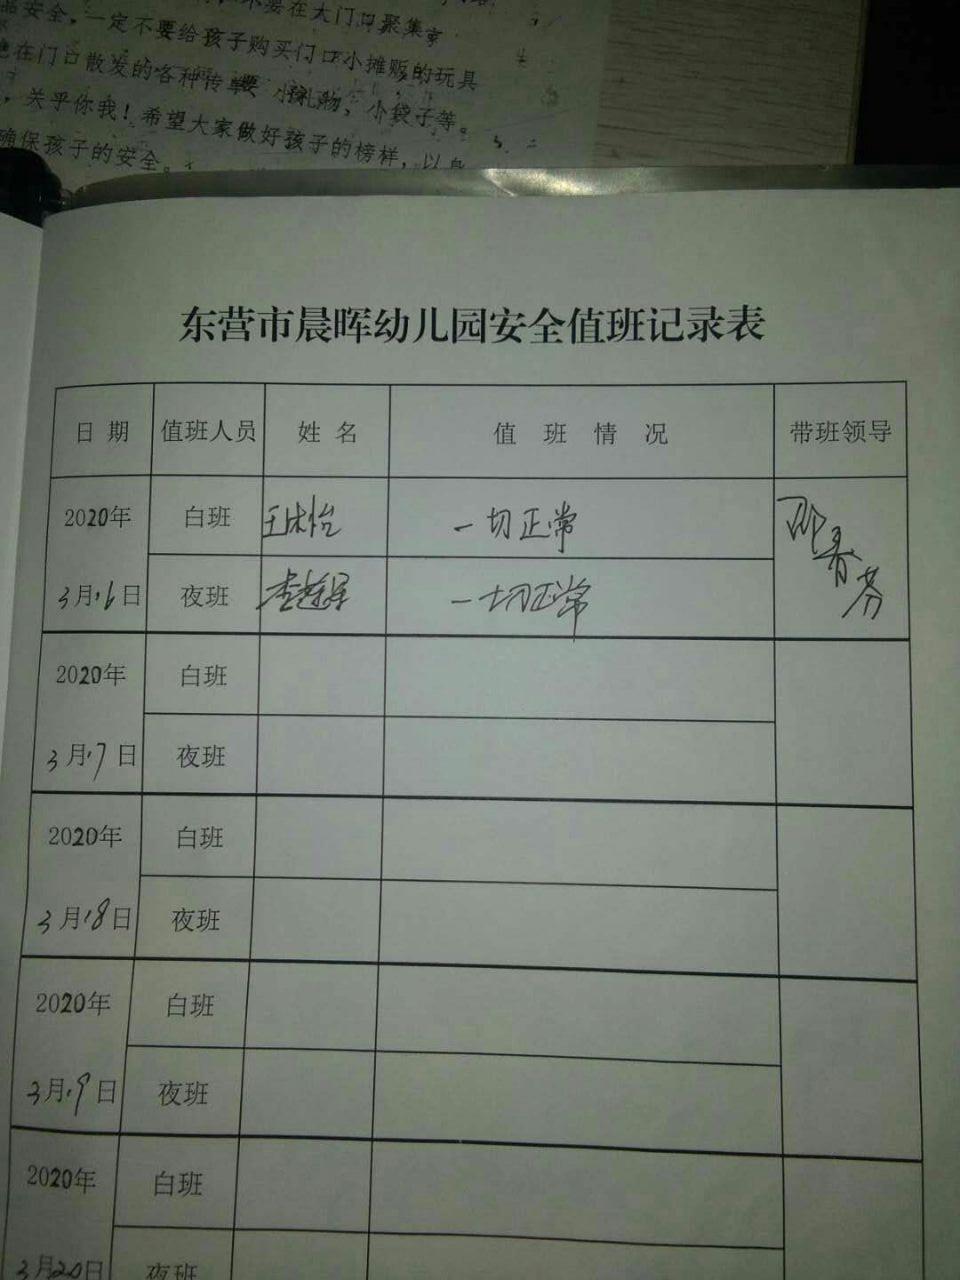 不要在大门口聚集
安全,一定不要给孩子购买门口小摊贩的玩具
在门口散发的各种传 小礼物,小袋子等。
,关乎你我!希望大家做好孩子的榜样,以身
确保孩子的安全。
东营市晨晖幼儿园安全值班记录表
日期 值班人员 姓名 值班情况 带班领导
2020年 白班 一切正常
3月16日 夜班 一切正常
2020年 白班
3月17日 夜班
2020年 白班
3月18日 夜班
2020年 白班
3月19日 夜班
2020年 白班
3月20日 夜班